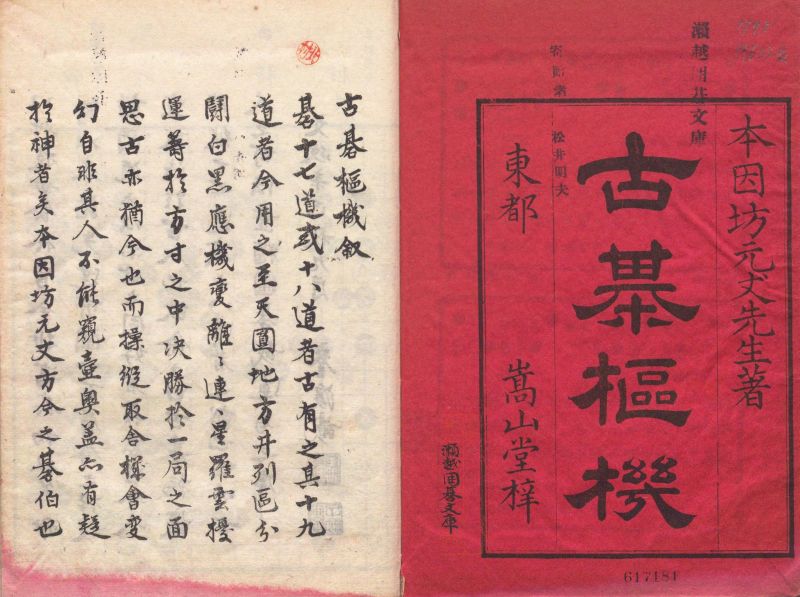 瀬越囲碁文庫
寄贈者 松井明夫
本因坊元丈先生著
古棊樞機
東都 嵩山堂梓
瀬越囲碁文庫
617181
古碁樞機叙
碁十七道或十八道者古有之其十九
道者今用之至天圓地方井列區分
鬪白黒應機變離〻連〻星羅雲擾
運籌於方寸之中决勝於一局之面
思古亦猶今也而操縱取舍機會変
幻自非其人不能窺壷奥盖亦有疑
於神者矣本因坊元丈方今之碁伯也